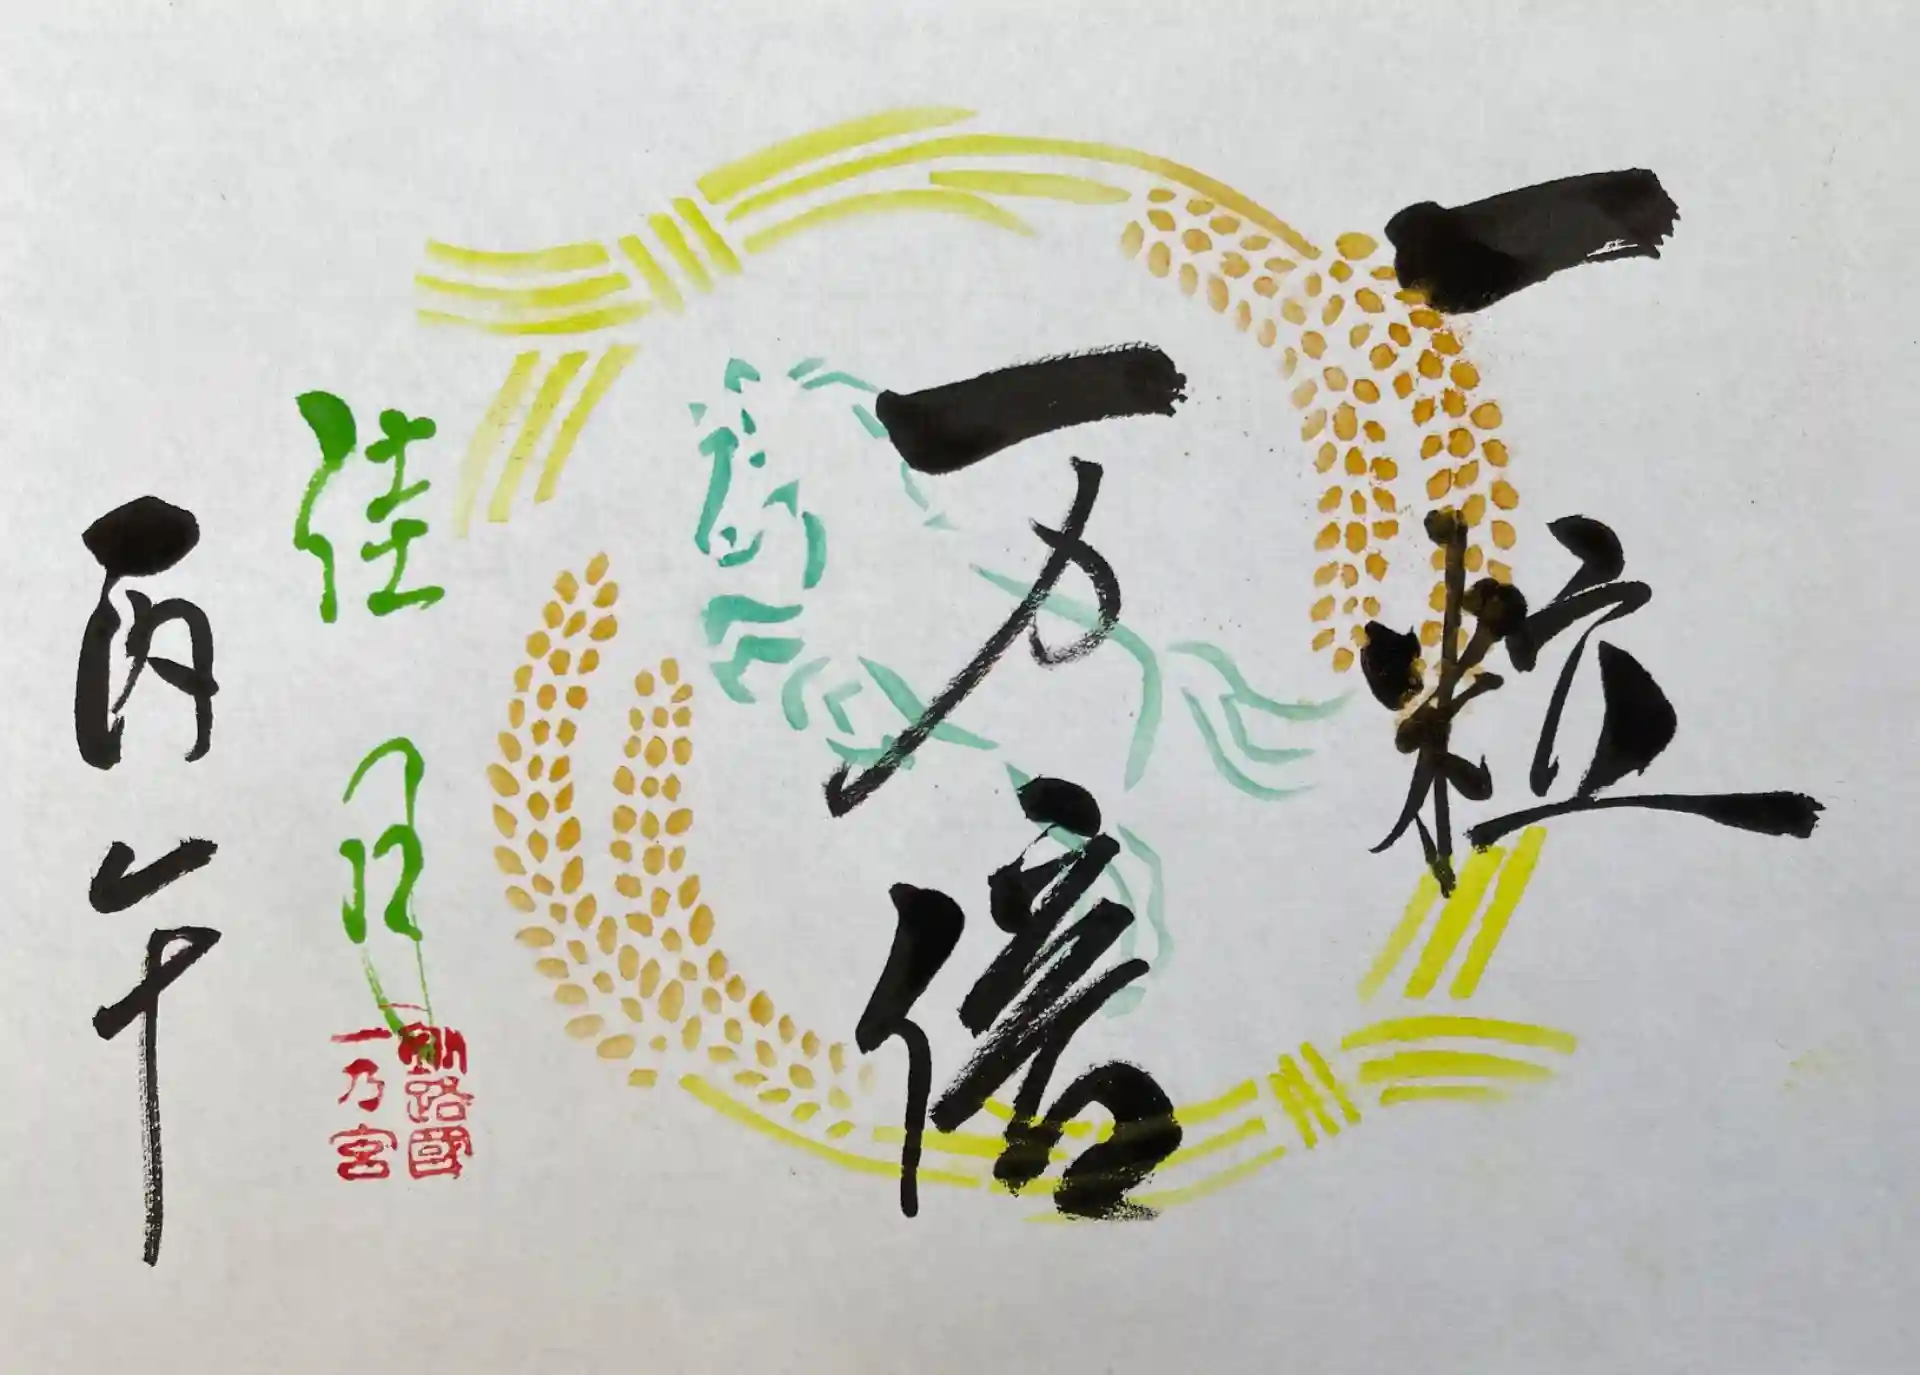 一粒
万倍
佳月
丙午
釧路國
一乃宮